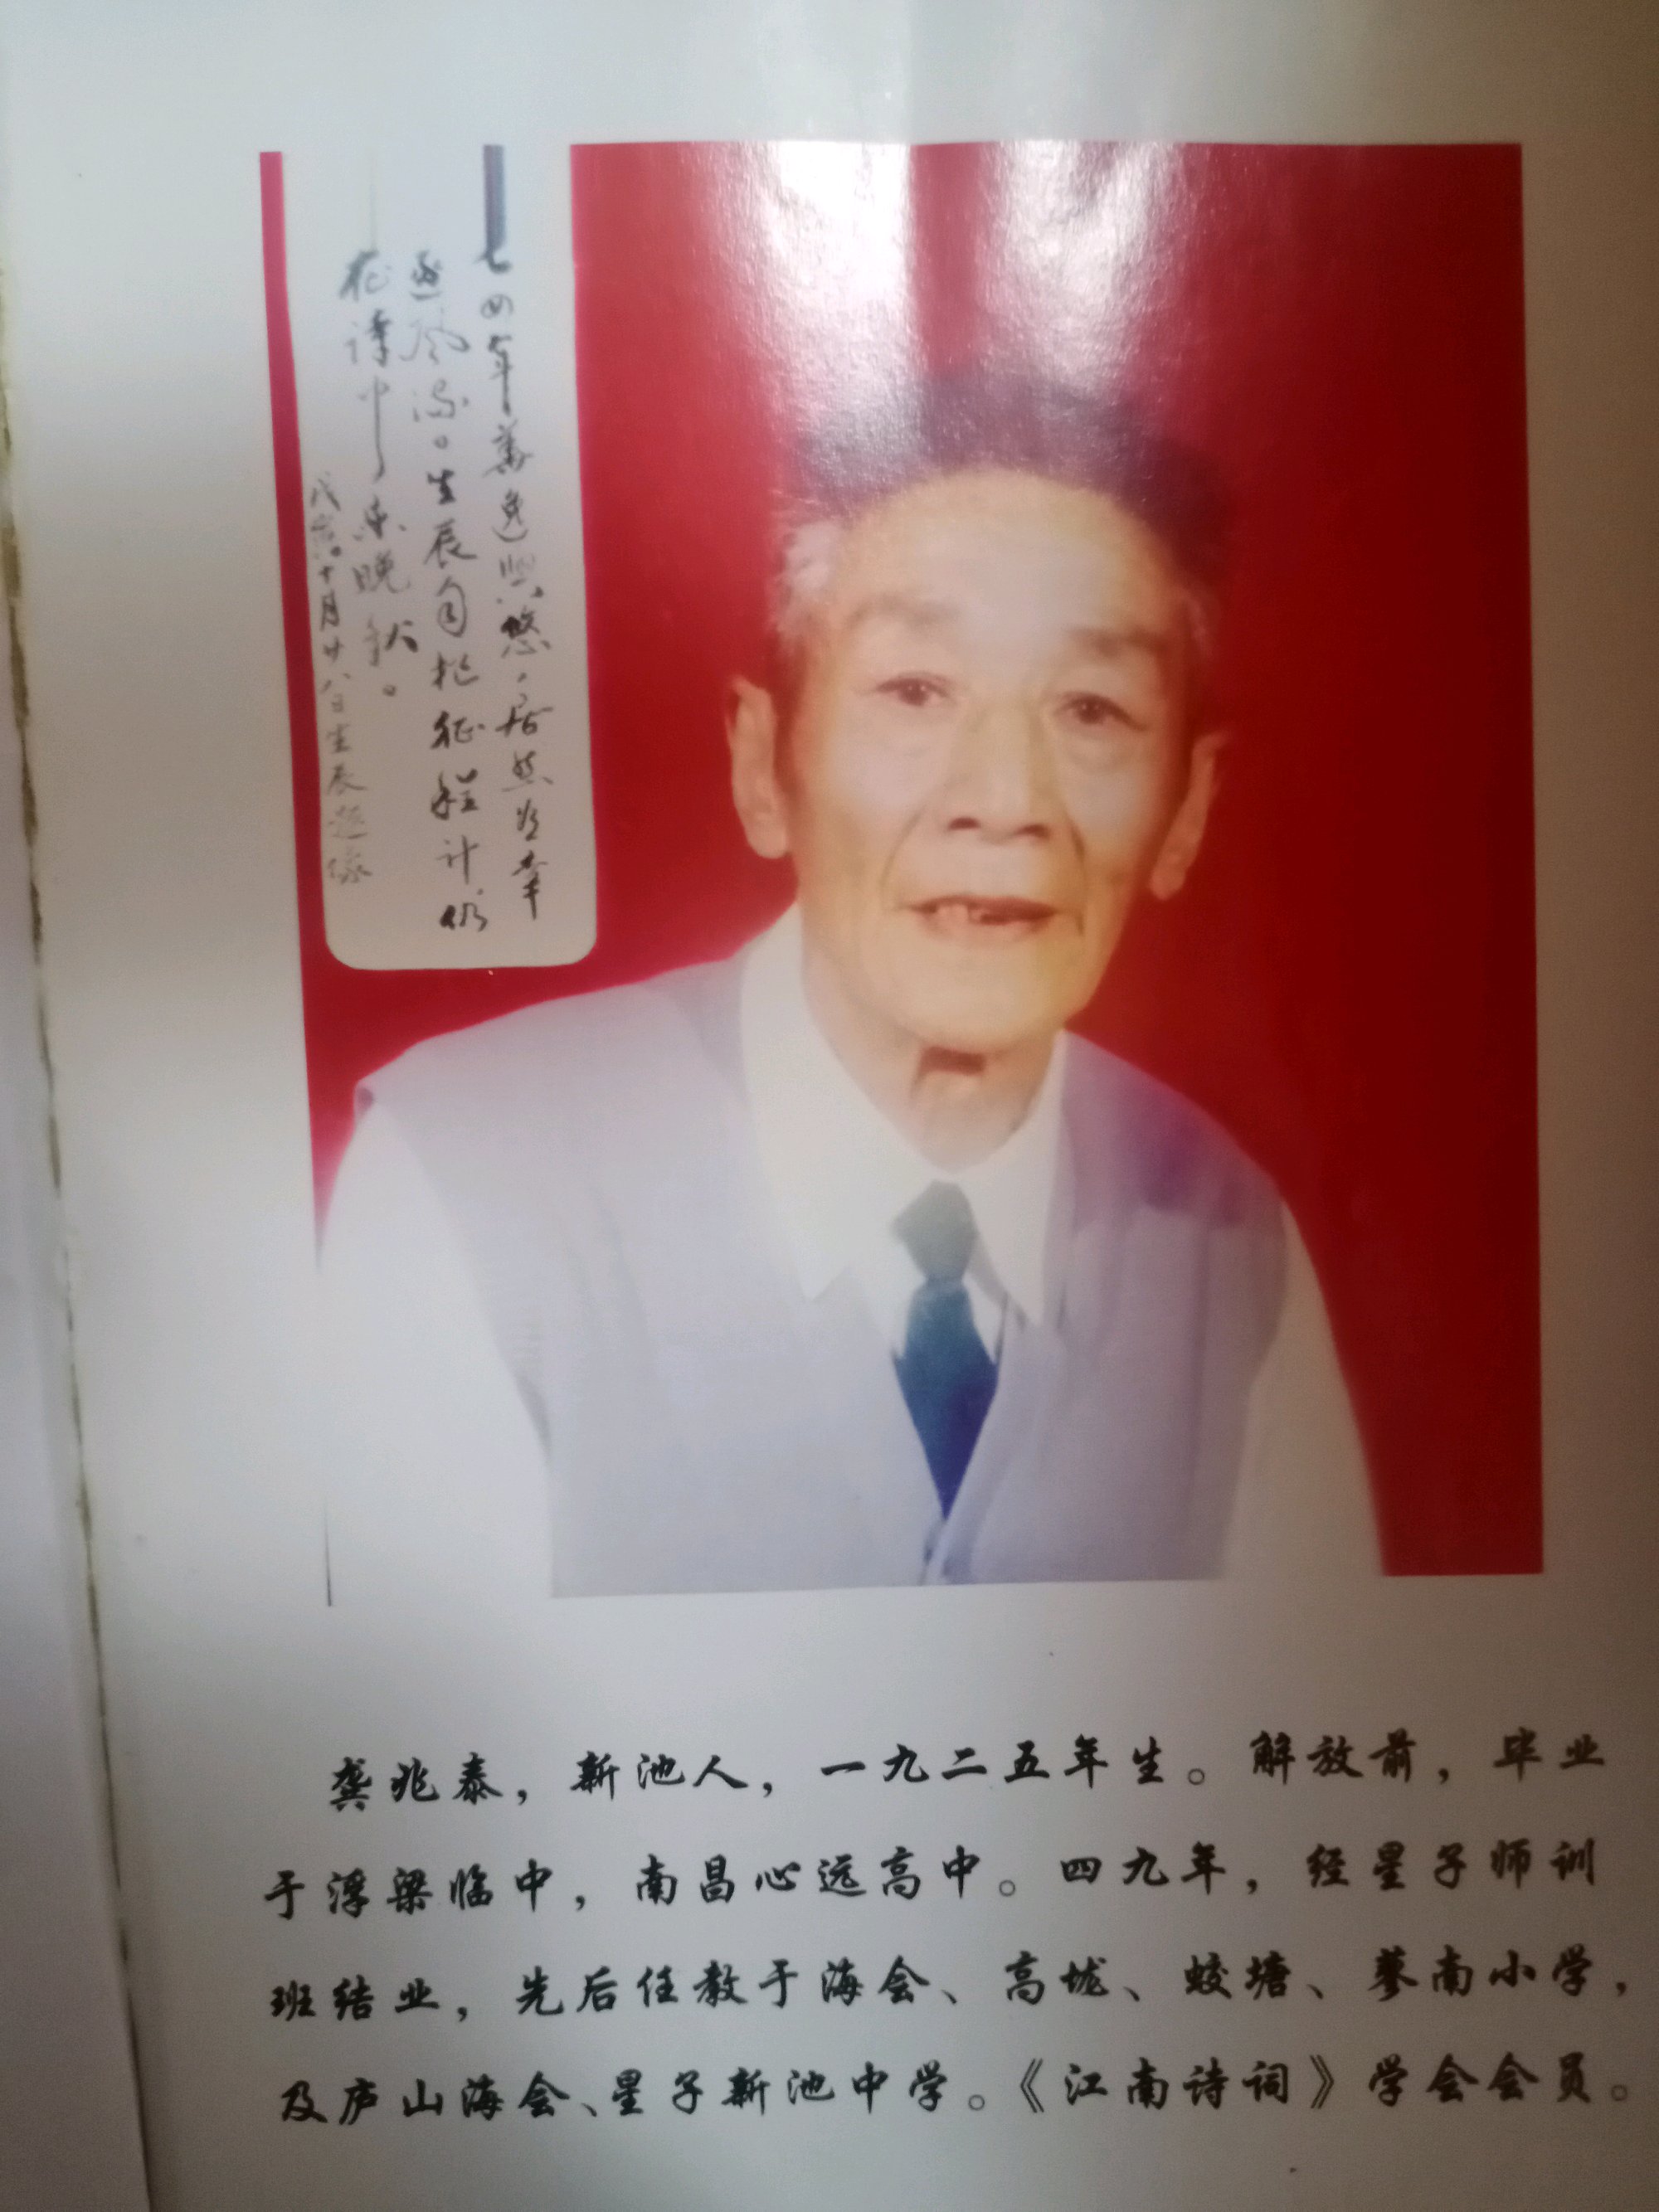 七四年华逸兴悠，居然当幸
逐风流。生辰自祝征程计，仍
在诗中乐晚秋。
戊寅。十月廿八日生辰题像
龚兆泰，新池人，一九二五年生。解放前，毕业
于浮梁临中，南昌心远高中。四九年，经星子师训
班结业，先后任教于海会、高垅、蛟塘、蓼南小学，
及庐山海会、星子新池中学。《江南诗词》学会会员。